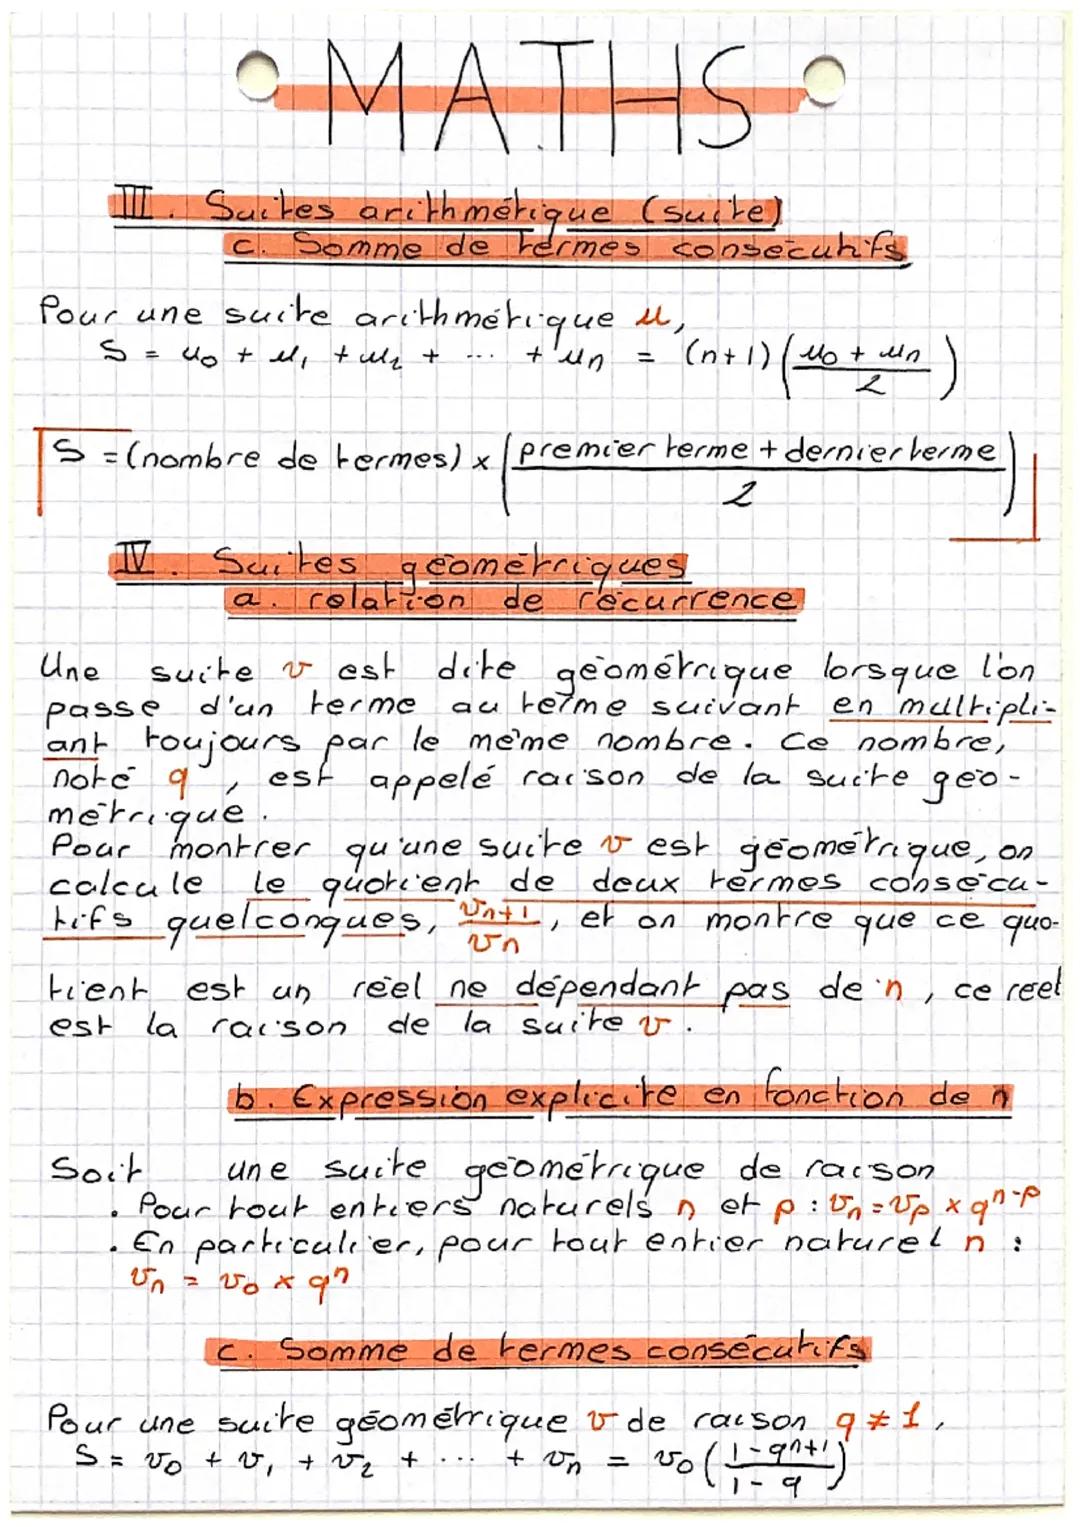 MATHS
III. Suites arithmétique (suite)
c. Somme de termes consécutifs
Pour une suite arithmétique u,
S = u₀ + u₁ + u₂ + ... + uₙ = (n+1) ((u₀ + uₙ)/2)
S = (nombre de termes) × ((premier terme + dernier terme)/2)
IV. Suites géométriques
a. relation de récurrence
Une suite v est dite géométrique lorsque l'on
passe d'un terme au terme suivant en multipli-
ant toujours par le même nombre. Ce nombre,
noté q, est appelé raison de la suite géo-
métrique.
Pour montrer qu'une suite v est géométrique, on
calcule le quotient de deux termes consécu-
tifs quelconques, vₙ₊₁/vₙ, et on montre que ce quo-
tient est un réel ne dépendant pas de n, ce réel
est la raison de la suite v.
b. Expression explicite en fonction de n
Soit une suite géométrique de raison
. Pour tout entiers naturels n et p : vₙ = vₚ × qⁿ⁻ᵖ
. En particulier, pour tout entier naturel n :
vₙ = v₀ × qⁿ
c. Somme de termes consécutifs
Pour une suite géométrique v de raison q ≠ 1,
S = v₀ + v₁ + v₂ + ... + vₙ = v₀ ((1 - qⁿ⁺¹)/(1 - q))